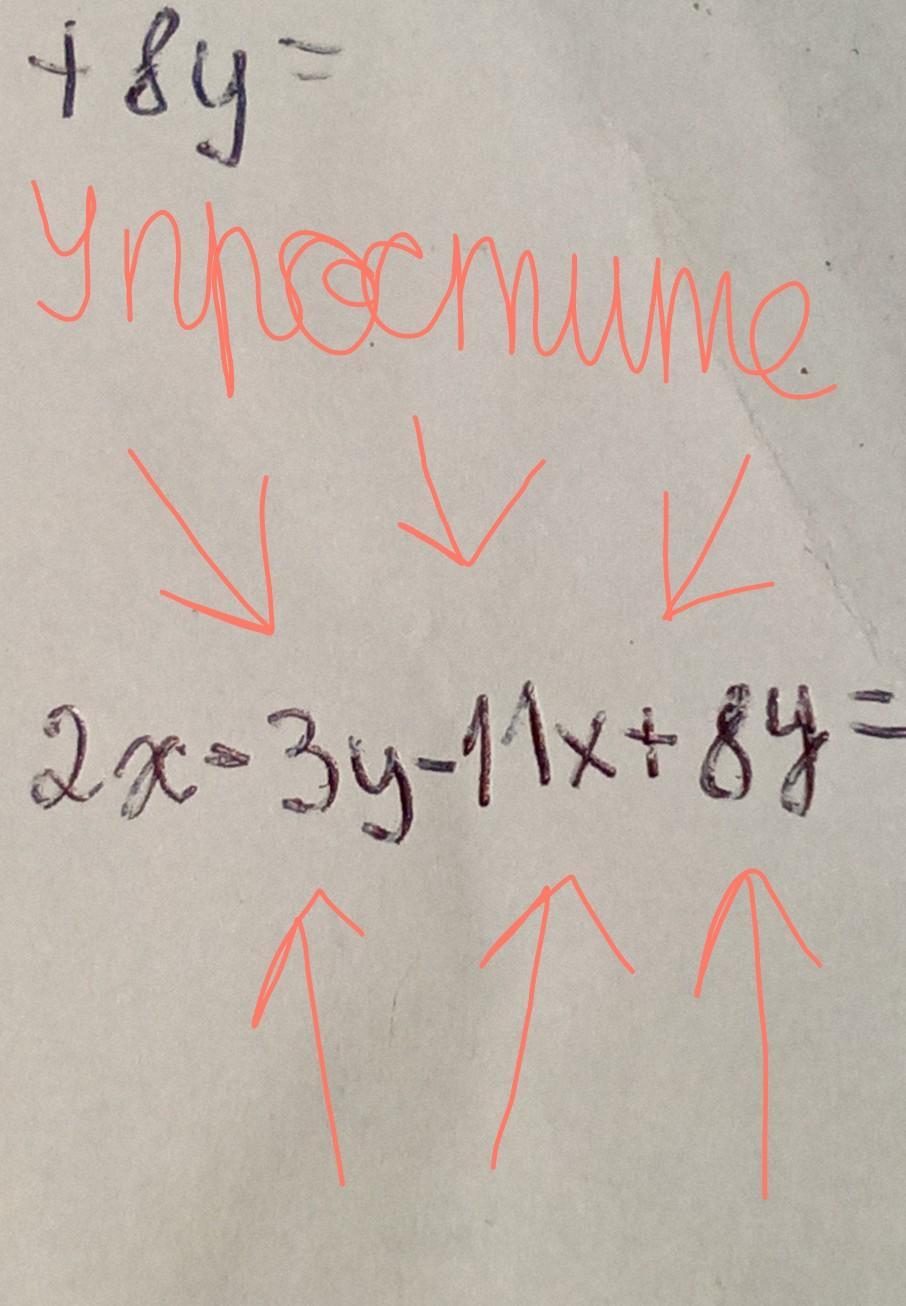 +8y=
Упростите
2x-3y-11x+8y=